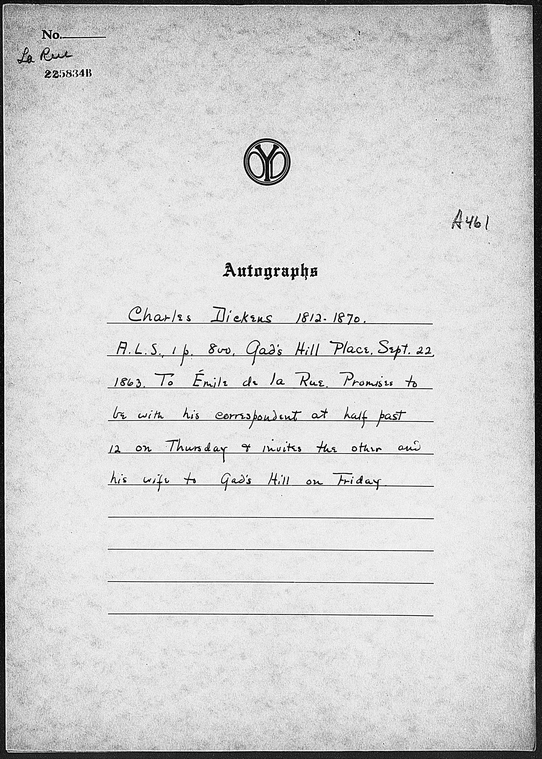 No.
La Rue
225834B
OYO
A461
Autographs
Charles Dickens 1812-1870.
A.L.S., 1 p. 8vo, Gad's Hill Place, Sept. 22,
1863. To Émile de la Rue. Promises to
be with his correspondent at half past
12 on Thursday & invites the other and
his wife to Gad's Hill on Friday